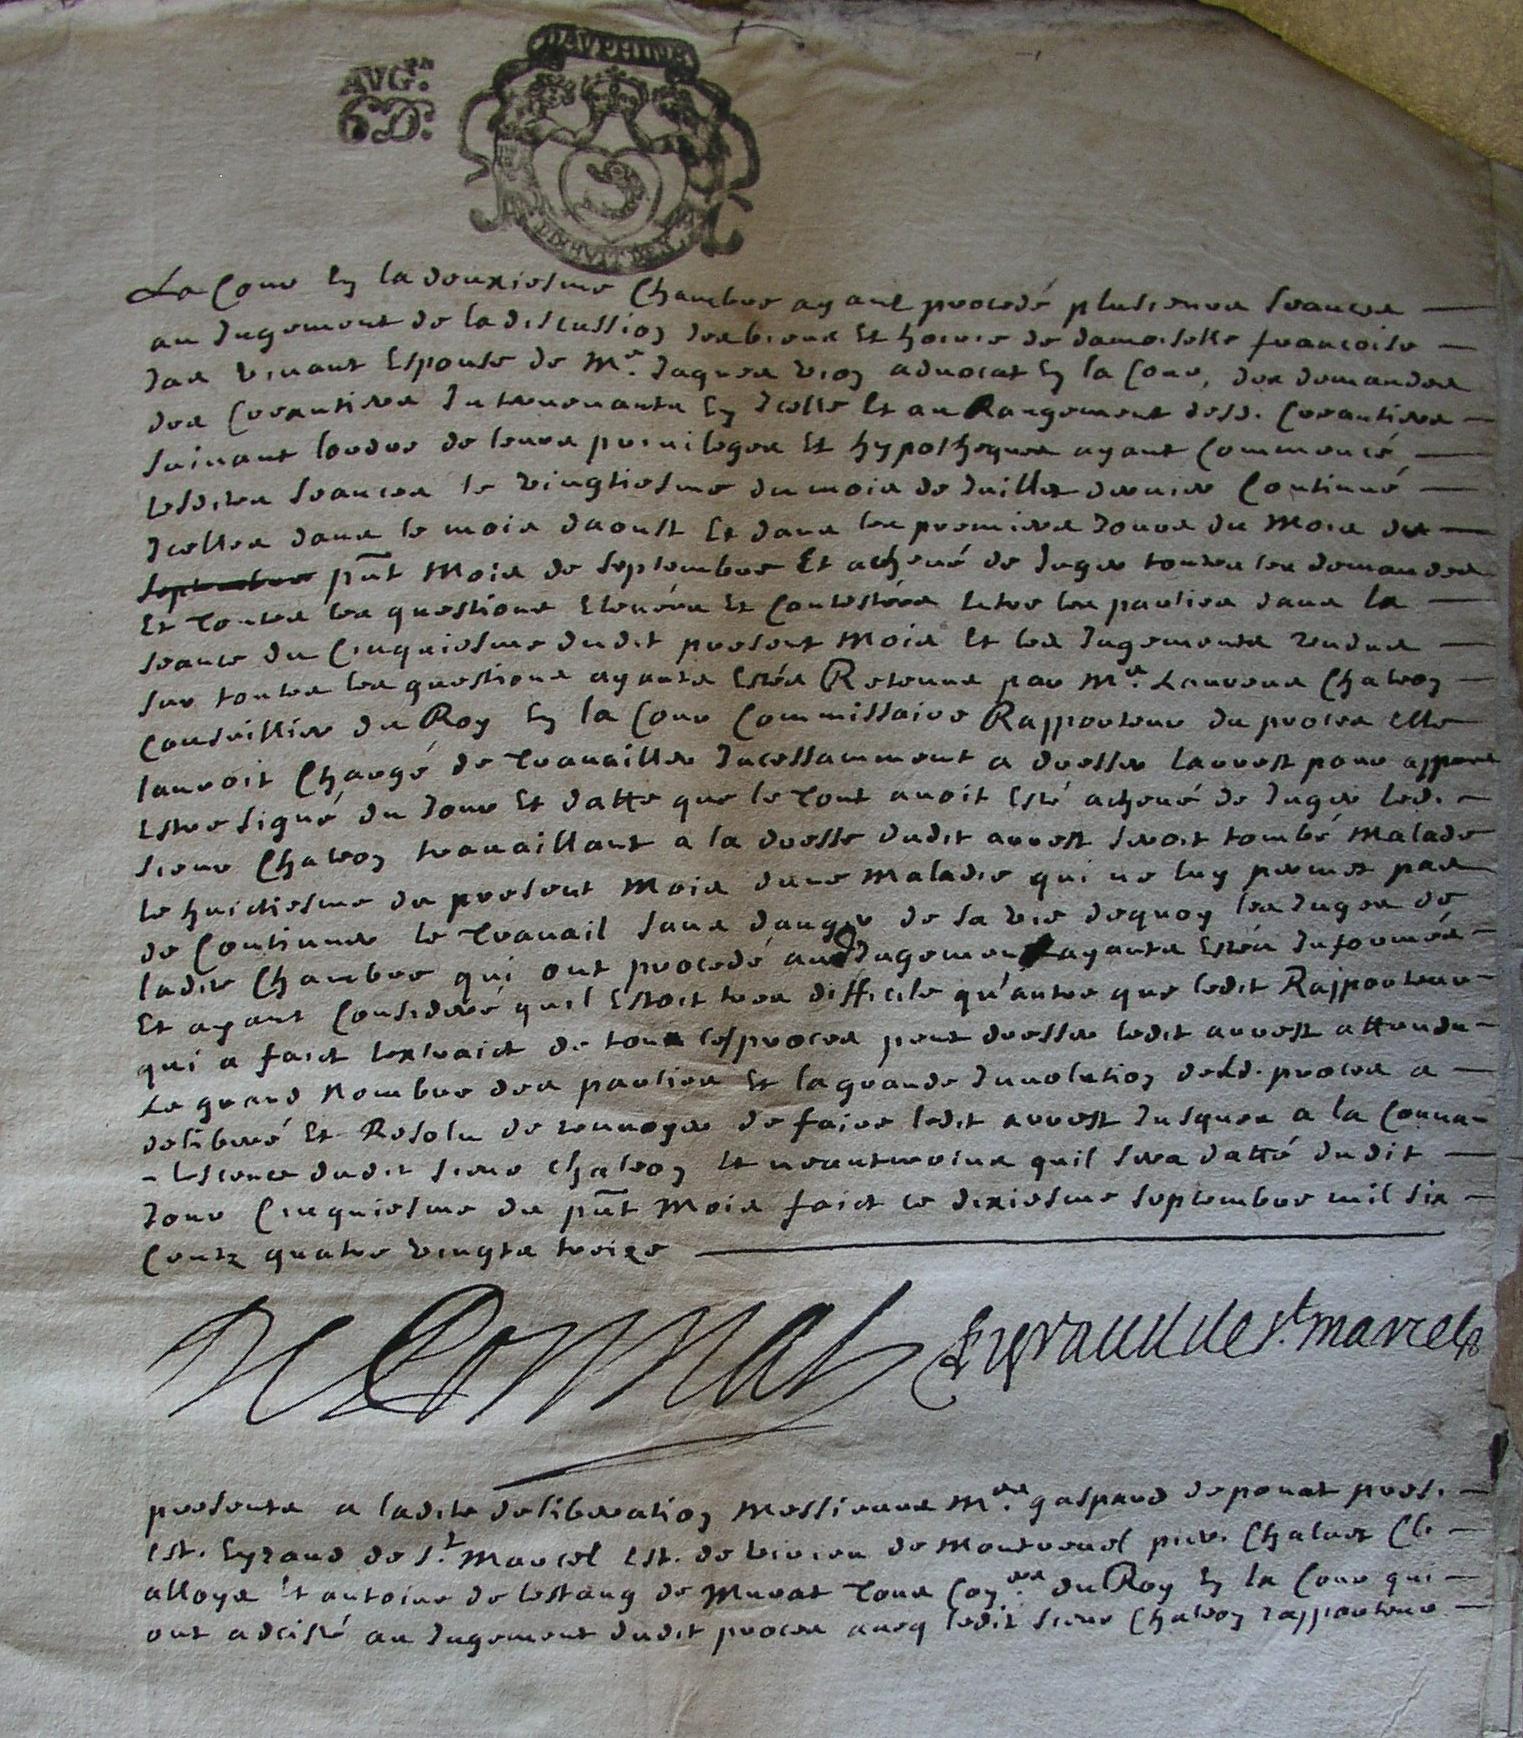 DAUPHINE
AVG.TN
6D.
La Cour En la deuxiesme Chambre ayant procedé plusieurs seances
au Jugement de la discussion des biens Et hoirie de damoiselle francoise
vivant Espouse de Mr. Jaques vion advocat En la Cour, des demandes
des Creantiers Intervenants En Icelle Et au Rangement desd. Creantiers
suivant lordre de leurs privileges Et hypotheques ayant Commencé
lesdites seances le vingtiesme du mois de Juillet dernier Continué
Icelles dans le mois daoust Et dans les premiers Jours du Mois de
septembre pnt Mois de septembre Et achevé de Juger toutes les demandes
Et toutes les questions Elevées Et Contestées Entre les parties dans la
seance du Cinquiesme dudit present Mois Et les Jugements rendus
sur toutes les questions ayants Estés Retenus par Mr. Laurens Chaleon
Conseillier du Roy En la Cour Commissaire Rapporteur du proces Elle
lauroit Chargé de travailler Incessamment a dresser larrest pour apprest
Estre signé du Jour Et datte que le tout avoit Esté achevé de Juger led.
sieur Chaleon travaillant a la dresse dudit arrest seroit tombé Malade
le huictiesme du present Mois dune Maladie qui ne luy permet pas
de Continuer le travail sans danger de sa vie dequoy les Juges de
ladite Chambre qui ont procedé aud Jugement ayants Estés Informés
Et ayant Consideré quil Estoit tres difficile qu'autre que ledit Rapporteur
qui a faict lextraict de tous les proces peut dresser ledit arrest attendu
Le grand Nombre des parties Et la grande Involution desd. proces a
deliberé Et Resolu de renvoyer de faire ledit arrest Jusques a la Conva-
-lescence dudit sieur Chaleon Et neantmoins quil sera datté dudit
Jour Cinquiesme du pnt Mois faict ce dixiesme septembre mil six
Centz quatre vingts treize
De Ponnat Eyraud de st. marcel
presents a ladite deliberation Messieurs Mres. gaspard deponat pres.
Est. Eyraud de St. Marcel Est. de vivien de Montrevel pier. Chaluet Cl.
alloys Et antoine de lestang de Murat tous Conrs. du Roy En la Cour qui
ont adcisté au Jugement dudit proces avecq ledit sieur Chaleon rapporteur